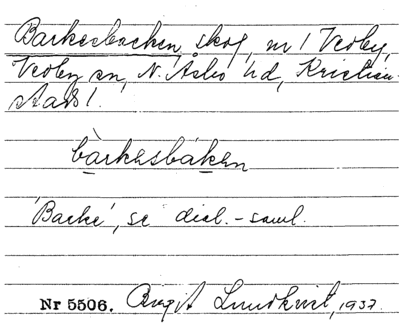 Barkesbacken, skog, nr 1 Vedby,
Vedby sn, N. Åsbo hd, Kristian-
stads l.
bàrkesbáken
'Barke', se dial.-saml.
Nr 5506. Birgit Lundkvist, 1937.